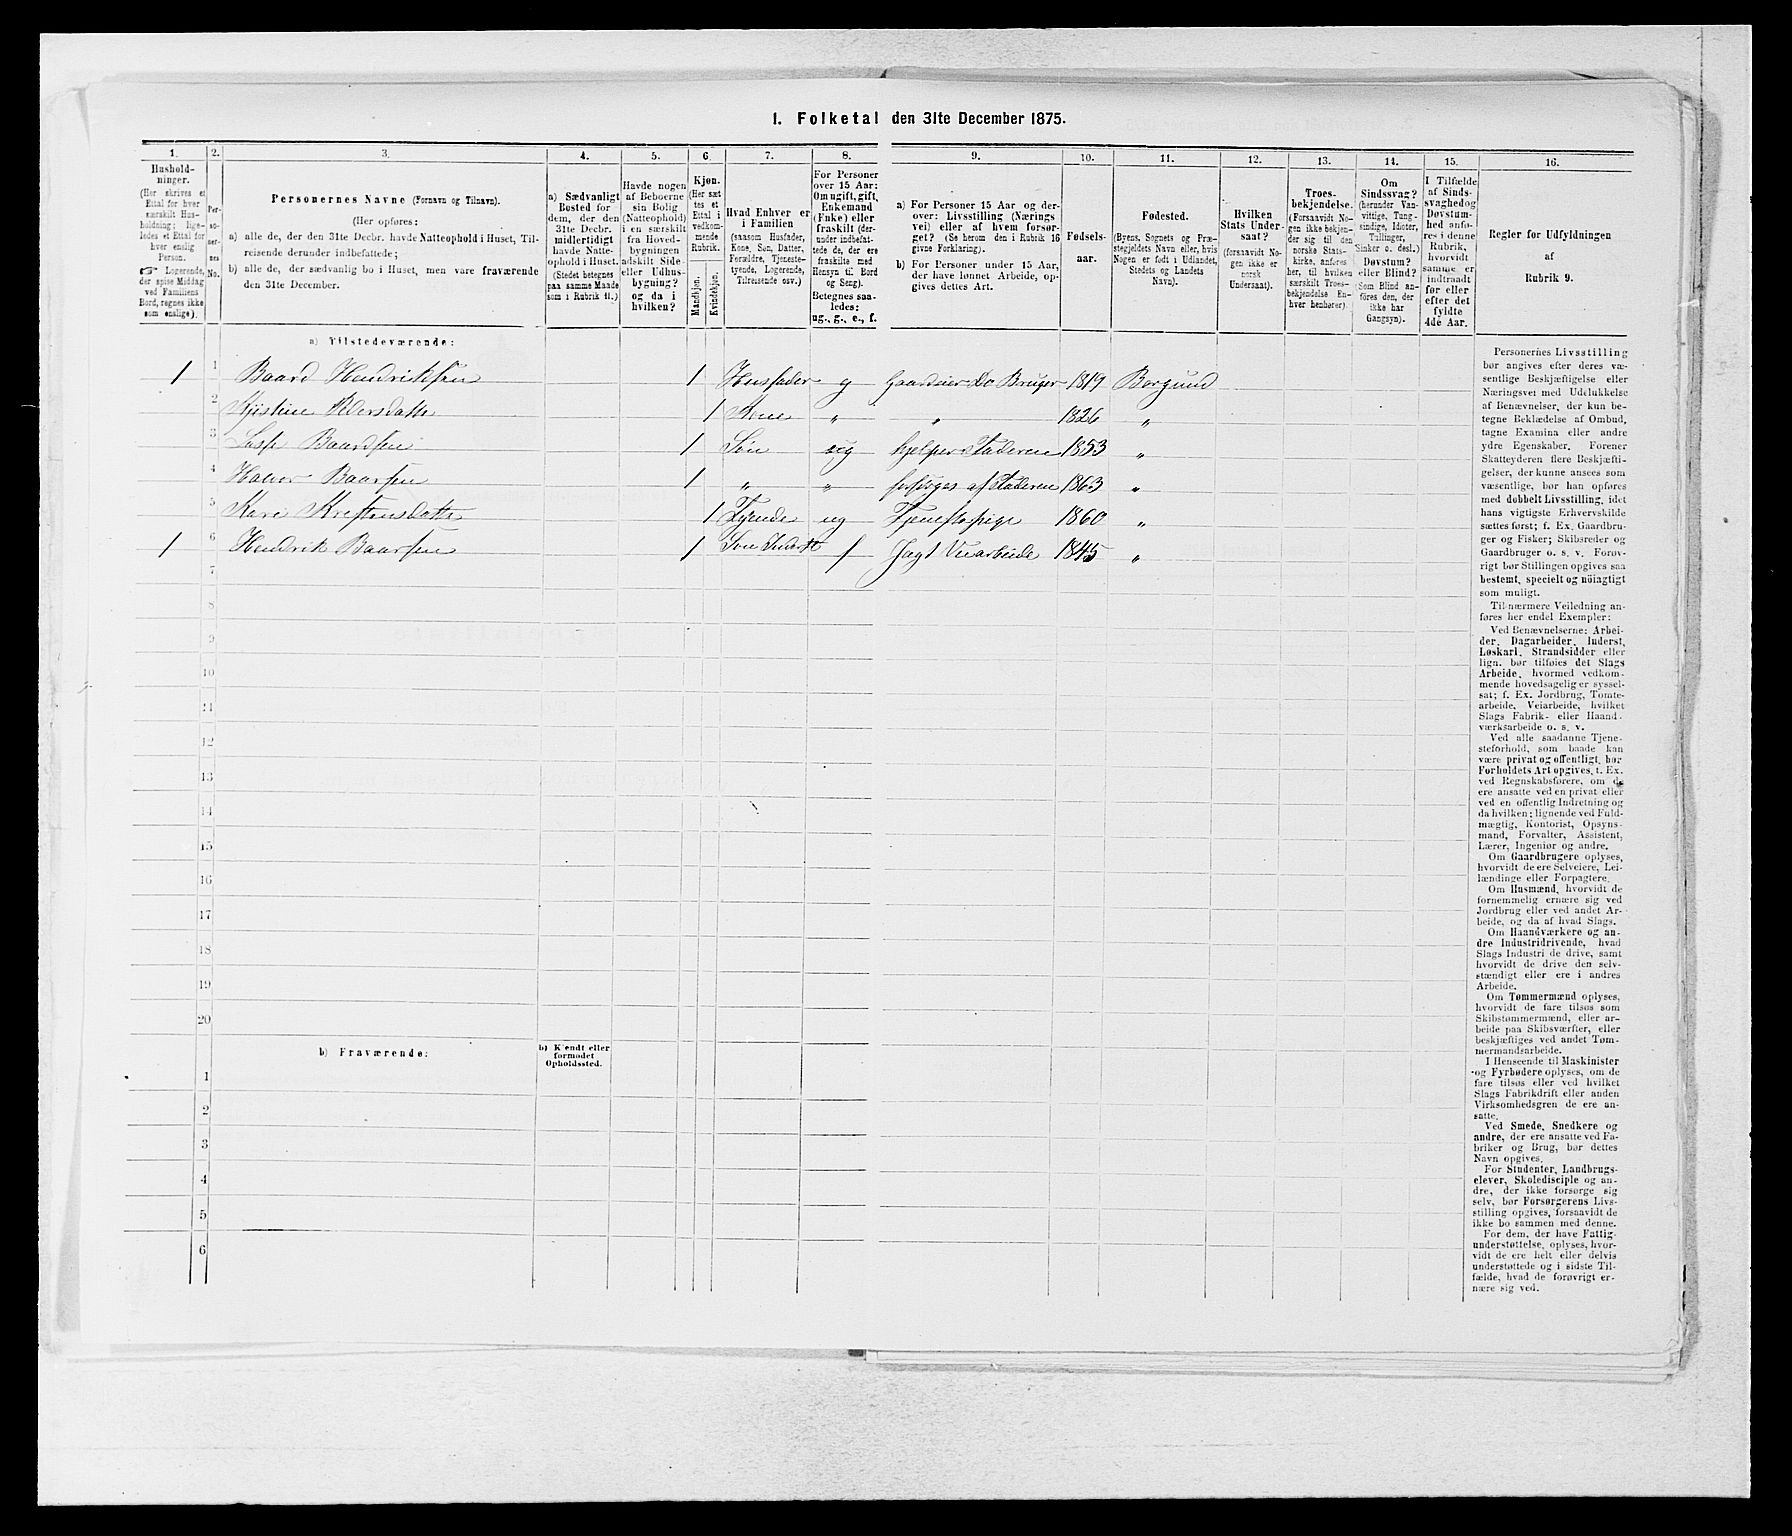 1. Folketal den 31te December 1875.
1.
2.
3.
4.
5.
6.
7.
8.
9.
10.
11.
12.
13.
14.
15.
16.
Hushold-
ninger.
(Her skrives et
Ettal for hver
særskilt Hus-
holdning; lige-
ledes et Ettal for
hver enslig
Person.
☞ Logerende,
der spise Middag
ved Familiens
Bord, regnes ikke
som enslige).
Per-
so-
ner-
nes
No.
Personernes Navne (Fornavn og Tilnavn).
(Her opføres:
a) alle de, der den 31te Decbr. havde Natteophold i Huset, Til-
reisende derunder indbefattede;
b) alle de, der sædvanlig bo i Huset, men vare fraværende
den 31te December.
a) Sædvanligt
Bosted for
dem, der den
31te Decbr.
midlertidigt
havde Natte-
ophold i Huset.
(Stedet betegnes
paa samme Maade
som i Rubrik 11.)
Havde nogen
af Beboerne
sin Bolig
(Natteophold)
i en særskilt
fra Hoved-
bygningen
adskilt Side-
eller Udhus-
bygning?
og da i
hvilken?
Kjøn.
(Her sæt-
tes et
Ettal i
vedkom-
mende
Rubrik.
Mandkjøn.
Kvindekjøn.
Hvad Enhver er
i Familien
(saasom Husfader,
Kone, Søn, Datter,
Forældre, Tjeneste-
tyende, Logerende,
Tilreisende osv.)
For Personer
over 15 Aar:
Om ugift, gift,
Enkemand
(Enke) eller
fraskilt (der-
under indbefat-
tede de, der ere
fraskilte med
Hensyn til Bord
og Seng).
Betegnes saa-
ledes:
ug., g., e., f.
a) For Personer 15 Aar og der-
over: Livsstilling (Nærings
vei) eller af hvem forsør-
get? (Se herom den i Rubrik 16
givne Forklaring).
b) For Personer under 15 Aar,
der have lønnet Arbeide, op-
gives dettes Art.
Fødsels-
aar.
Fødested.
(Byens, Sognets og Præ-
stegjeldets Navn eller, hvis
Nogen er født i Udlandet,
Stedets og Landets
Navn).
Hvilken
Stats Under-
saat?
(forsaavidt No-
gen ikke er
norsk
Undersaat).
Troes-
bekjendelse.
(Forsaavidt No-
gen ikke bekjen-
der sig til den
norske Stats-
kirke, anføres
her, til hvilken
særskilt Troes-
bekjendelse En-
hver henhører).
Om
Sindssvag?
(herunder Van-
vittige, Tung-
sindige, Idioter,
Tullinger,
Sinker o. desl.)
Døvstum?
eller Blind?
(Som Blind an-
føres den, der
ikke har
Gangsyn).
I Tilfælde
af Sinds-
svaghed og
Døvstum-
hed anfø-
res i denne
Rubrik,
hvorvidt
samme er
indtraadt
før eller
efter det
fyldte
4de Aar.
Regler for Udfyldningen
af
Rubrik 9.
a) Tilstedeværende:
1 1 Baard Hendriksen 1 Husfader g Gaardeier do Bruger 1819 Borgund
2 Kjistine Pedersdatte 1 Kone " " 1826 "
3 Lasse Baardsen 1 Søn ug hjelper Faderen 1853 "
4 Halvor Baarsen 1 " " forsørges af Faderen 1863 "
5 Kari Krestensdatte 1 Tyende ug Tjenestepige 1860 "
1 6 Hendrik Baarsen 1 Søn Inderst f Veiarbeide 1845 "
7
8
9
10
11
12
13
14
15
16
17
18
19
20
b) Fraværende:
b) Kjendt eller
formodet
Opholdssted.
1
2
3
4
5
6
Personernes Livsstilling
bør angives efter deres væ-
sentlige Beskjæftigelse eller
Næringsvei med Udelukkelse
af Benævnelser, der kun be-
tegne Beklædelse af Ombud,
tagne Examina eller andre
ydre Egenskaber. Forener
Skatteyderen flere Beskjæfti-
gelser, der kunne ansees som
væsentlige, bør han opføres
med dobbelt Livsstilling, idet
hans vigtigste Erhvervskilde
sættes først; f. Ex. Gaardbru-
ger og Fisker; Skibsreder og
Gaardbruger o. s. v. Forøv-
rigt bør Stillingen opgives saa
bestemt, specielt og nöiagtigt
som muligt.
Til nærmere Veiledning an-
føres her endel Exempler:
Ved Benævnelserne: Arbei-
der, Dagarbeider, Inderst,
Løskarl, Strandsidder eller
lign. bør tilføies det Slags
Arbeide, hvormed vedkom-
mende hovedsagelig er syssel-
sat; f. Ex. Jordbrug, Tomte-
arbeide, Veiarbeide, hvilket
Slags Fabrik- eller Haand-
værksarbeide o. s. v.
Ved alle saadanne Tjene-
steforhold, som baade kan
være privat og offentligt, bør
Forholdets Art opgives, t. Ex.
ved Regnskabsførere, om de
ere ansatte ved en privat eller
ved en offentlig Indretning og
da hvilken; lignende ved Fuld-
mægtig, Kontorist, Opsyns-
mand, Forvalter, Assistent,
Lærer, Ingeniør og andre.
Om Gaardbrugere oplyses,
hvorvidt de ere Selveiere, Lei-
lændinge eller Forpagtere.
Om Husmænd, hvorvidt de
fornemmelig ernære sig ved
Jordbrug eller ved andet Ar-
beide, og da af hvad Slags.
Om Haandværkere og an-
dre Industridrivende, hvad
Slags Industri de drive, samt
hvorvidt de drive den selv-
stændigt eller ere i andres
Arbeide.
Om Tømmermænd oplyses,
hvorvidt de fare tilsøs som
Skibstømmermænd, eller ar-
beide paa Skibsværfter, eller
beskjæftiges ved andet Tøm-
mermandsarbeide.
I Henseende til Maskinister
og Fyrbødere oplyses, om de
fare tilsøs eller ved hvilket
Slags Fabrikdrift eller anden
Virksomhedsgren de ere an-
satte.
Ved Smede, Snedkere og
andre, der ere ansatte ved Fa-
briker og Brug, bør dettes
Navn opgives.
For Studenter, Landbrugs-
elever, Skoledisciple og an-
dre, der ikke forsørge sig
selv, bør Forsørgerens Livs-
stilling opgives, forsaavidt de
ikke bo sammen med denne.
For dem, der have Fattig-
understøttelse, oplyses, hvor-
vidt de ere helt eller delvis
understøttede og i sidste Til-
fælde, hvad de forøvrigt er-
nære sig ved.